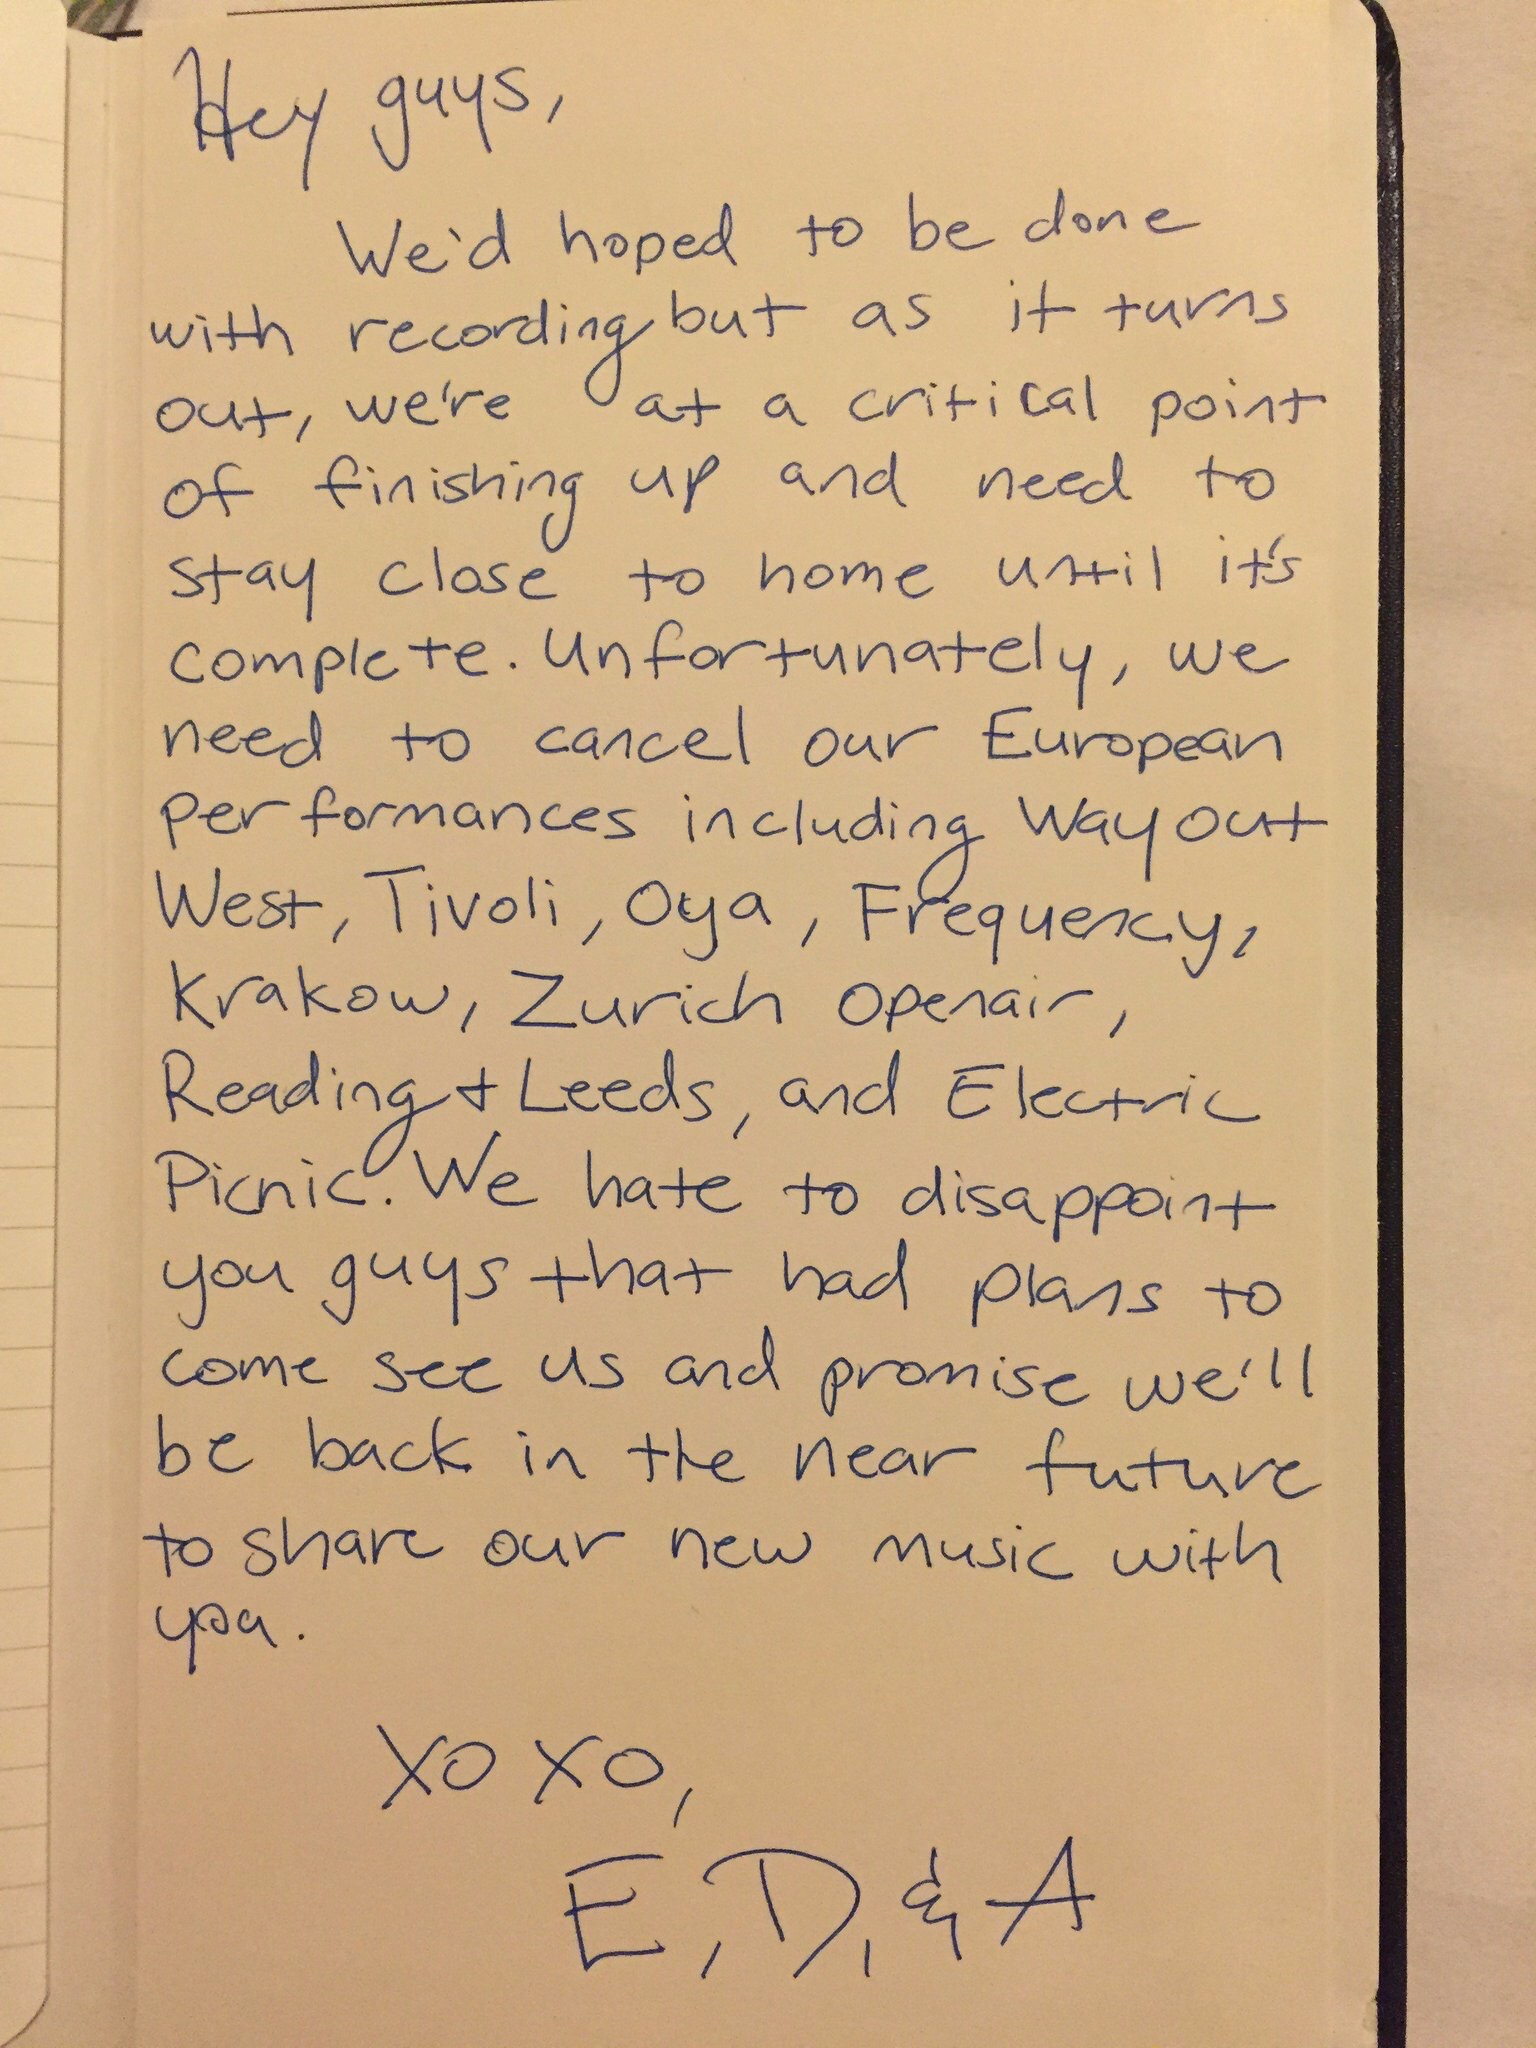 Hey guys,
We'd hoped to be done
with recording but as it turns
out, we're at a critical point
of finishing up and need to
stay close to home until it's
complete. Unfortunately, we
need to cancel our European
performances including Way out
West, Tivoli, Oya, Frequency,
Krakow, Zurich Openair,
Reading + Leeds, and Electric
Picnic. We hate to disappoint
you guys that had plans to
come see us and promise we'll
be back in the near future
to share our new music with
you.
XOXO,
E, D, & A